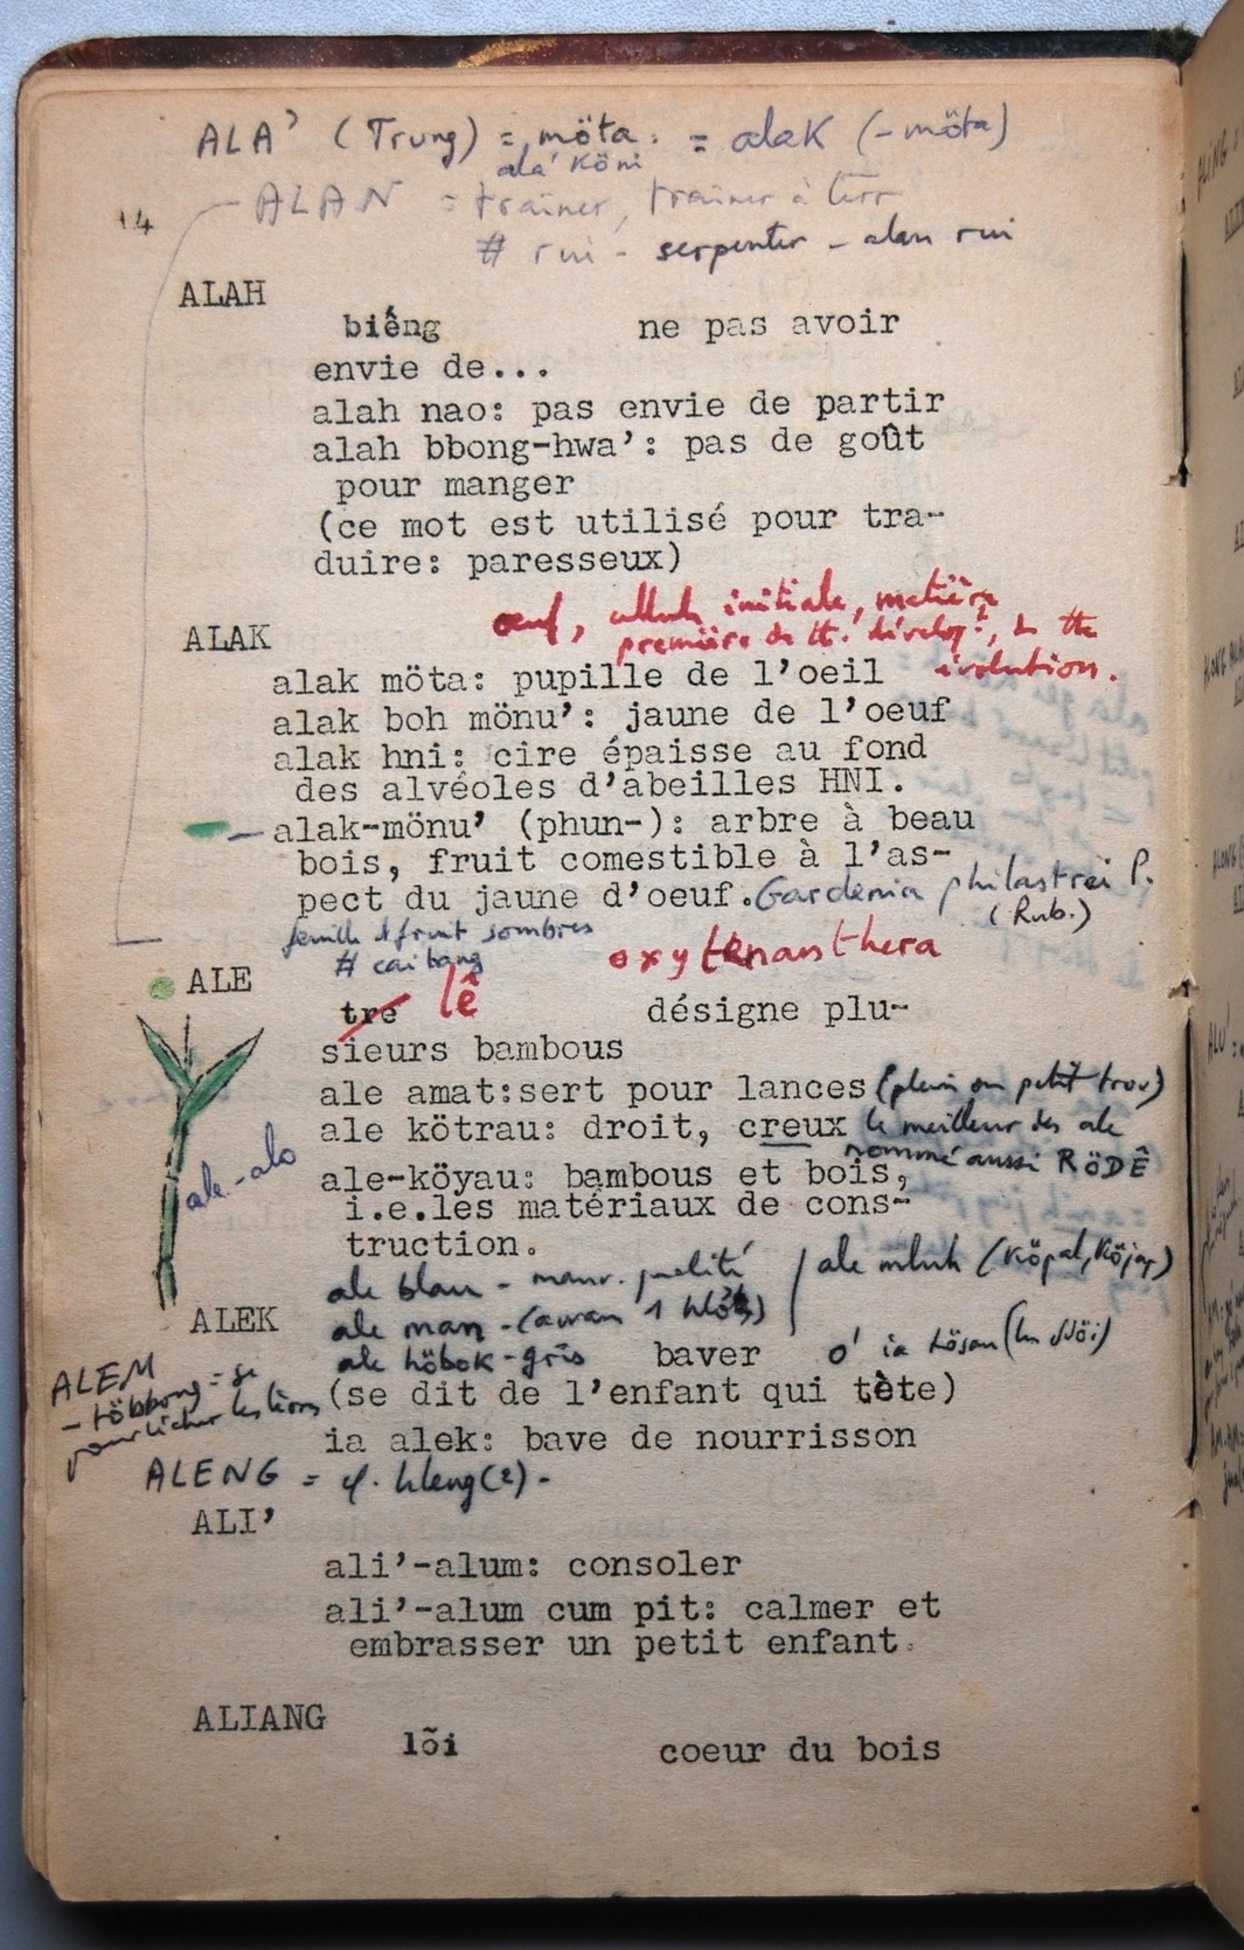 ALA' (Trung) = möta. = alak (-möta)
ala' köni
ALAN = traîner, traîner à terr
14
# rui - serpenter - alan rui
ALAH
biếng ne pas avoir
envie de...
alah nao: pas envie de partir
alah bbong-hwa': pas de goût
pour manger
(ce mot est utilisé pour tra-
duire: paresseux)
oeuf, initiale, matière
première de tt. dévelop!, & tte
évolution.
ALAK
alak möta: pupille de l'oeil
alak boh mönu': jaune de l'oeuf
alak hni: cire épaisse au fond
des alvéoles d'abeilles HNI.
alak-mönu' (phun-): arbre à beau
bois, fruit comestible à l'as-
pect du jaune d'oeuf. Gardenia philastrei P.
(Rub.)
feuille & fruit sombres
# cai bang
oxytenanthera
ALE
tre lê désigne plu-
sieurs bambous
ale amat:sert pour lances (plein ou petit trou)
ale kötrau: droit, creux le meilleur des ale
nommé aussi RÖDÊ
ale-alo
ale-köyau: bambous et bois,
i.e.les matériaux de cons-
truction.
ale blau - mauv. qualité
ale mluh (köpal, köjap)
ale man -
ale höbok - gris
ALEK
baver
o' ia hösan
(se dit de l'enfant qui tète)
ALEM
- többong = se
pourlécher les lèvres
ia alek: bave de nourrisson
ALENG = cf. hleng(2) -
ALI'
ali'-alum: consoler
ali'-alum cum pit: calmer et
embrasser un petit enfant.
ALIANG
lõi coeur du bois